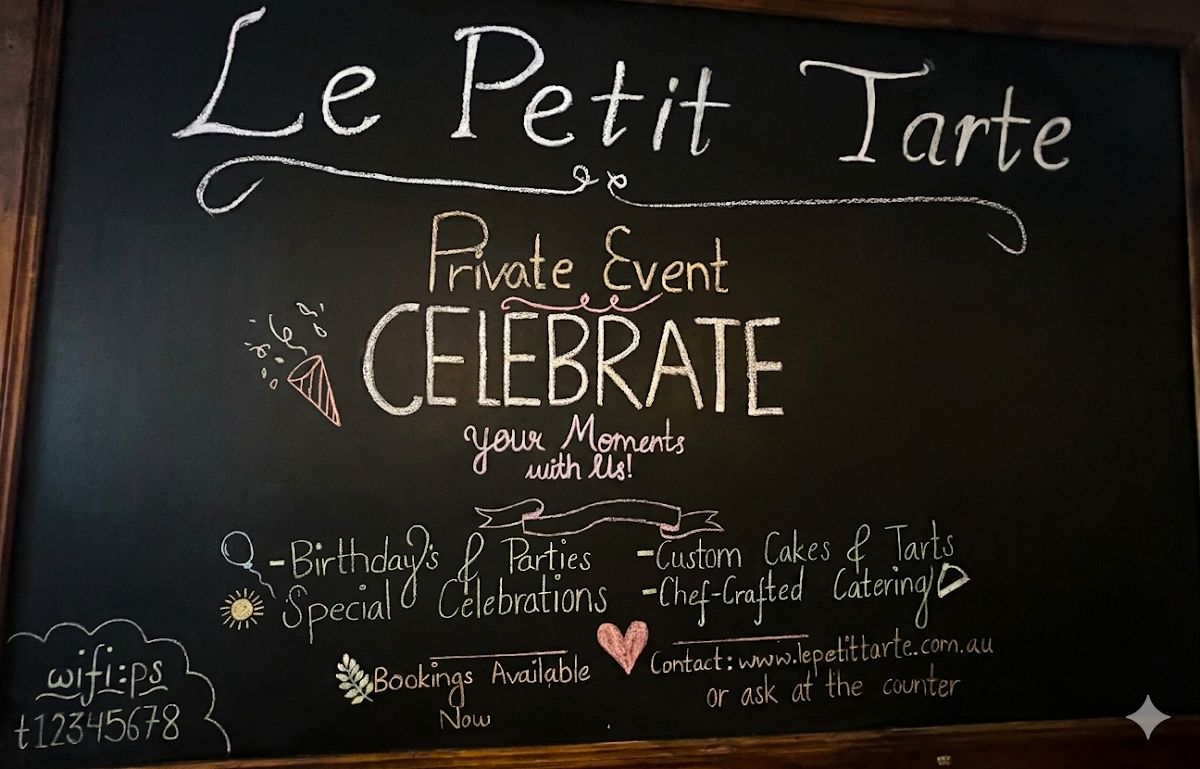 Le Petit Tarte
Private Event
CELEBRATE
your Moments
with Us!
-Birthday's & Parties
Special Celebrations
-Custom Cakes & Tarts
-Chef-Crafted Catering
Bookings Available
Now
Contact: www.lepetittarte.com.au
or ask at the counter
wifi:ps
t12345678